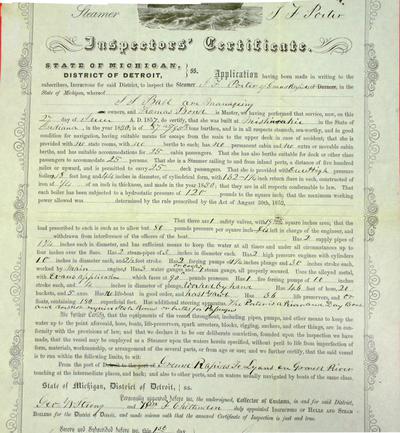 Steamer S F Porter
Inspectors' Certificate.
STATE OF MICHIGAN,
DISTRICT OF DETROIT, } ss. Application having been made in writing to the
subscribers, Inspectors for said District, to inspect the Steamer S. F. Porter of Grand Rapids
State of Michigan, whereof
are managing
owners, and Thomas Bond is Master, we having performed that service, now, on this
27 day of June A. D. 1857, certify, that she was built at in the State of
Indiana, in the year 1850, is of tons burthen, and is in all respects staunch, sea-worthy, and in good
condition for navigation, having suitable means for escape from the main to the upper deck in case of accident; that she is
provided with no state rooms, with no berths to each; has no permanent cabin and no extra or movable cabin
berths, and has suitable accommodations for 25 cabin passengers. That she has also berths suitable for deck or other class
passengers to accommodate 25 persons. That she is a Steamer sailing to and from inland ports, a distance of five hundred
miles or upward, and is permitted to carry 25 deck passengers. That she is provided with one high pressure
of an inch in thickness, and made in the year 1850; that they are in all respects conformable to law. That
each boiler has been subjected to a hydrostatic pressure of 120 pounds to the square inch; that the maximum working
power allowed was determined by the rule prescribed by the Act of August 30th, 1852.
That there are 1 safety valves, with square inches area; that the
load prescribed to each is such as to allow 80 pounds pressure per square inch left in charge of the engineer, and
withdrawn from interference of the officers of the boat. Has 2 supply pipes of
1¼ inches diameter each, and has sufficient means to keep the water at all times and under all circumstances up to
four inches over the flues. Has 2 steam-pipes of inches in diameter. Has 2 high pressure engines with cylinders
10 inches in diameter, and stroke. Has 2 forcing pumps inches plunge and inches stroke each,
worked by Main engine. Has 2 water gauges and steam gauge, all properly secured. Uses the alloyed metal,
with Evans application which fuses at 90 pounds pressure. Has 1 fire forcing pumps of 10 inches
stroke each, and inches is diameter of plunge, worked by hand. Has feet of hose, 21
buckets, and 2 axes. Has life-boat in good order, and Has 36 life preservers, and
floats, containing 190 superficial feet. Has additional steering apparatus. The Porter is a River and Day Boat
We further Certify, that the equipments of the vessel throughout, including pipes, pumps, and other means to keep the
water up to the point aforesaid, hose, boats, life-preservers, spark arresters, blocks, rigging, anchors, and other things, are in con-
formity with the provisions of law; and that we declare it to be our deliberate conviction, founded upon the inspection we have
made, that the vessel may be employed as a Steamer upon the waters herein specified, without peril to life from imperfection of
form, materials, workmanship, or arrangement of the several parts, or from age or use; and we further certify, that the said vessel
is to run within the following limits, to wit:
From the port of Grand Rapids To Lyons on Grand River
touching at the intermediate places, and back; and also to other ports, and on waters usually navigated by boats of the same class.
State of Michigan, District of Detroit, } ss.
Personally appeared before me, the undersigned, Collector of Customs, in and for said District,
Geo W Strong and Wm F Chittenden duly appointed Inspectors of Hulls and Steam
Boilers for the District of Detroit, and made solemn oath that the annexed Certificate of Inspection is just and true.
Sworn and Subscribed before me, this 1st day